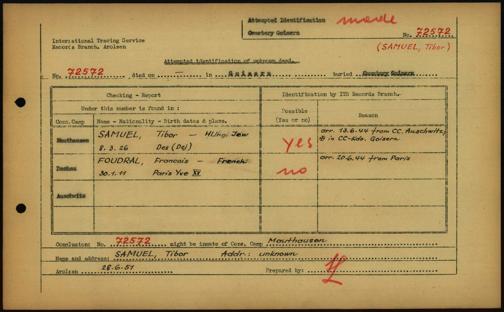 Attempted Identification made
Cemetery Goisern
No. 72572
(SAMUEL, Tibor)
International Tracing Service
Records Branch, Arolsen
Attempted identification of unknown dead.
No. 72572 died on — in Goisern buried Cemetery Goisern
Checking - Report
Identification by ITS Records Branch.
Under this number is found in :
Possible (Yes or no)
Reason
Conc.Camp Name - Nationality - Birth dates & place.
Mauthausen SAMUEL, Tibor - Jew
8.3.26 Des (Dej)
yes
arr. 13.6.44 from CC. Auschwitz,
in CC-Kdo. Goisern
Dachau FOUDRAL, Francois - French
30.1.11 Paris XV
no
arr. 20.6.44 from Paris
Auschwitz
Conclusion: No. 72572 might be inmate of Conc. Camp Mauthausen
Name and address: SAMUEL, Tibor Addr: unknown
Arolsen 28.6.51 Prepared by: